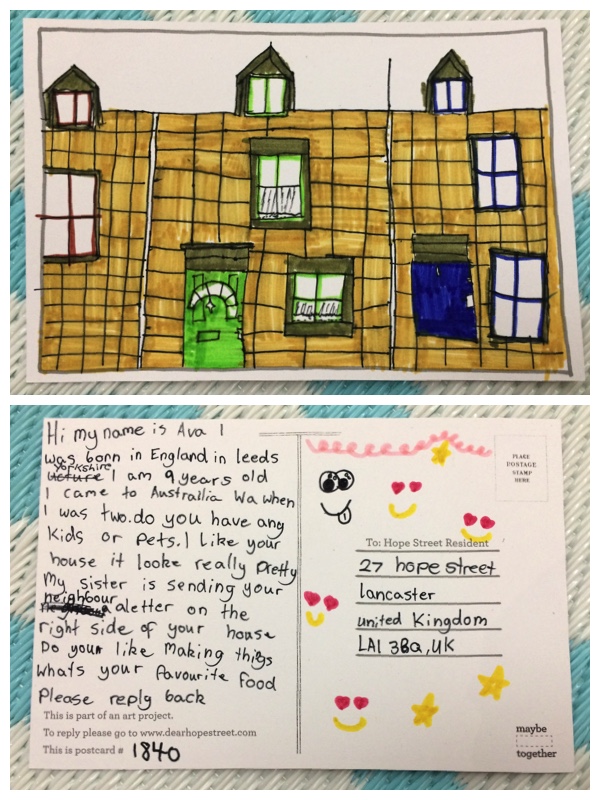 Hi my name is Ava I
was born in England in leeds
yorkshire
I am 9 years old
I came to Austrailia Wa when
I was two.do you have any
kids or Pets.I like your
house it looke really Pretty
My sister is sending your
neighbour
aletter on the
right side of your house
Do your like Making things
whats your favourite food
Please reply back
This is part of an art project.
To reply please go to www.dearhopestreet.com
This is postcard # 1840
PLACE
POSTAGE
STAMP
HERE
To: Hope Street Resident
27 hope street
lancaster
united Kingdom
LA1 3BQ,UK
maybe
together